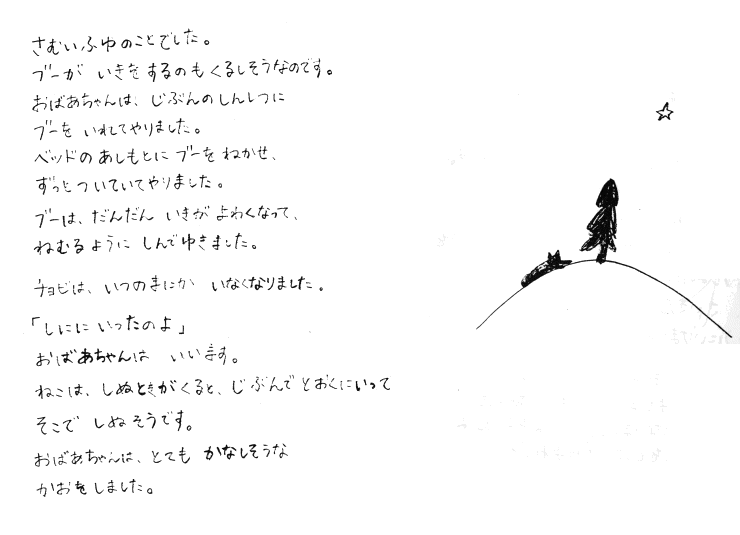 さむいふゆのことでした。
ブーが いきをするのもくるしそうなのです。
おばあちゃんは、じぶんのしんしつに
ブーを いれてやりました。
ベッドの あしもとに ブーを ねかせ、
ずっと ついていてやりました。
ブーは、だんだん いきが よわくなって、
ねむるように しんで ゆきました。
チョビは、いつのまにか いなくなりました。
「しにに いったのよ」
おばあちゃんは いいます。
ねこは、しぬときがくると、じぶんで とおくにいって
そこで しぬそうです。
おばあちゃんは、とても かなしそうな
かおをしました。